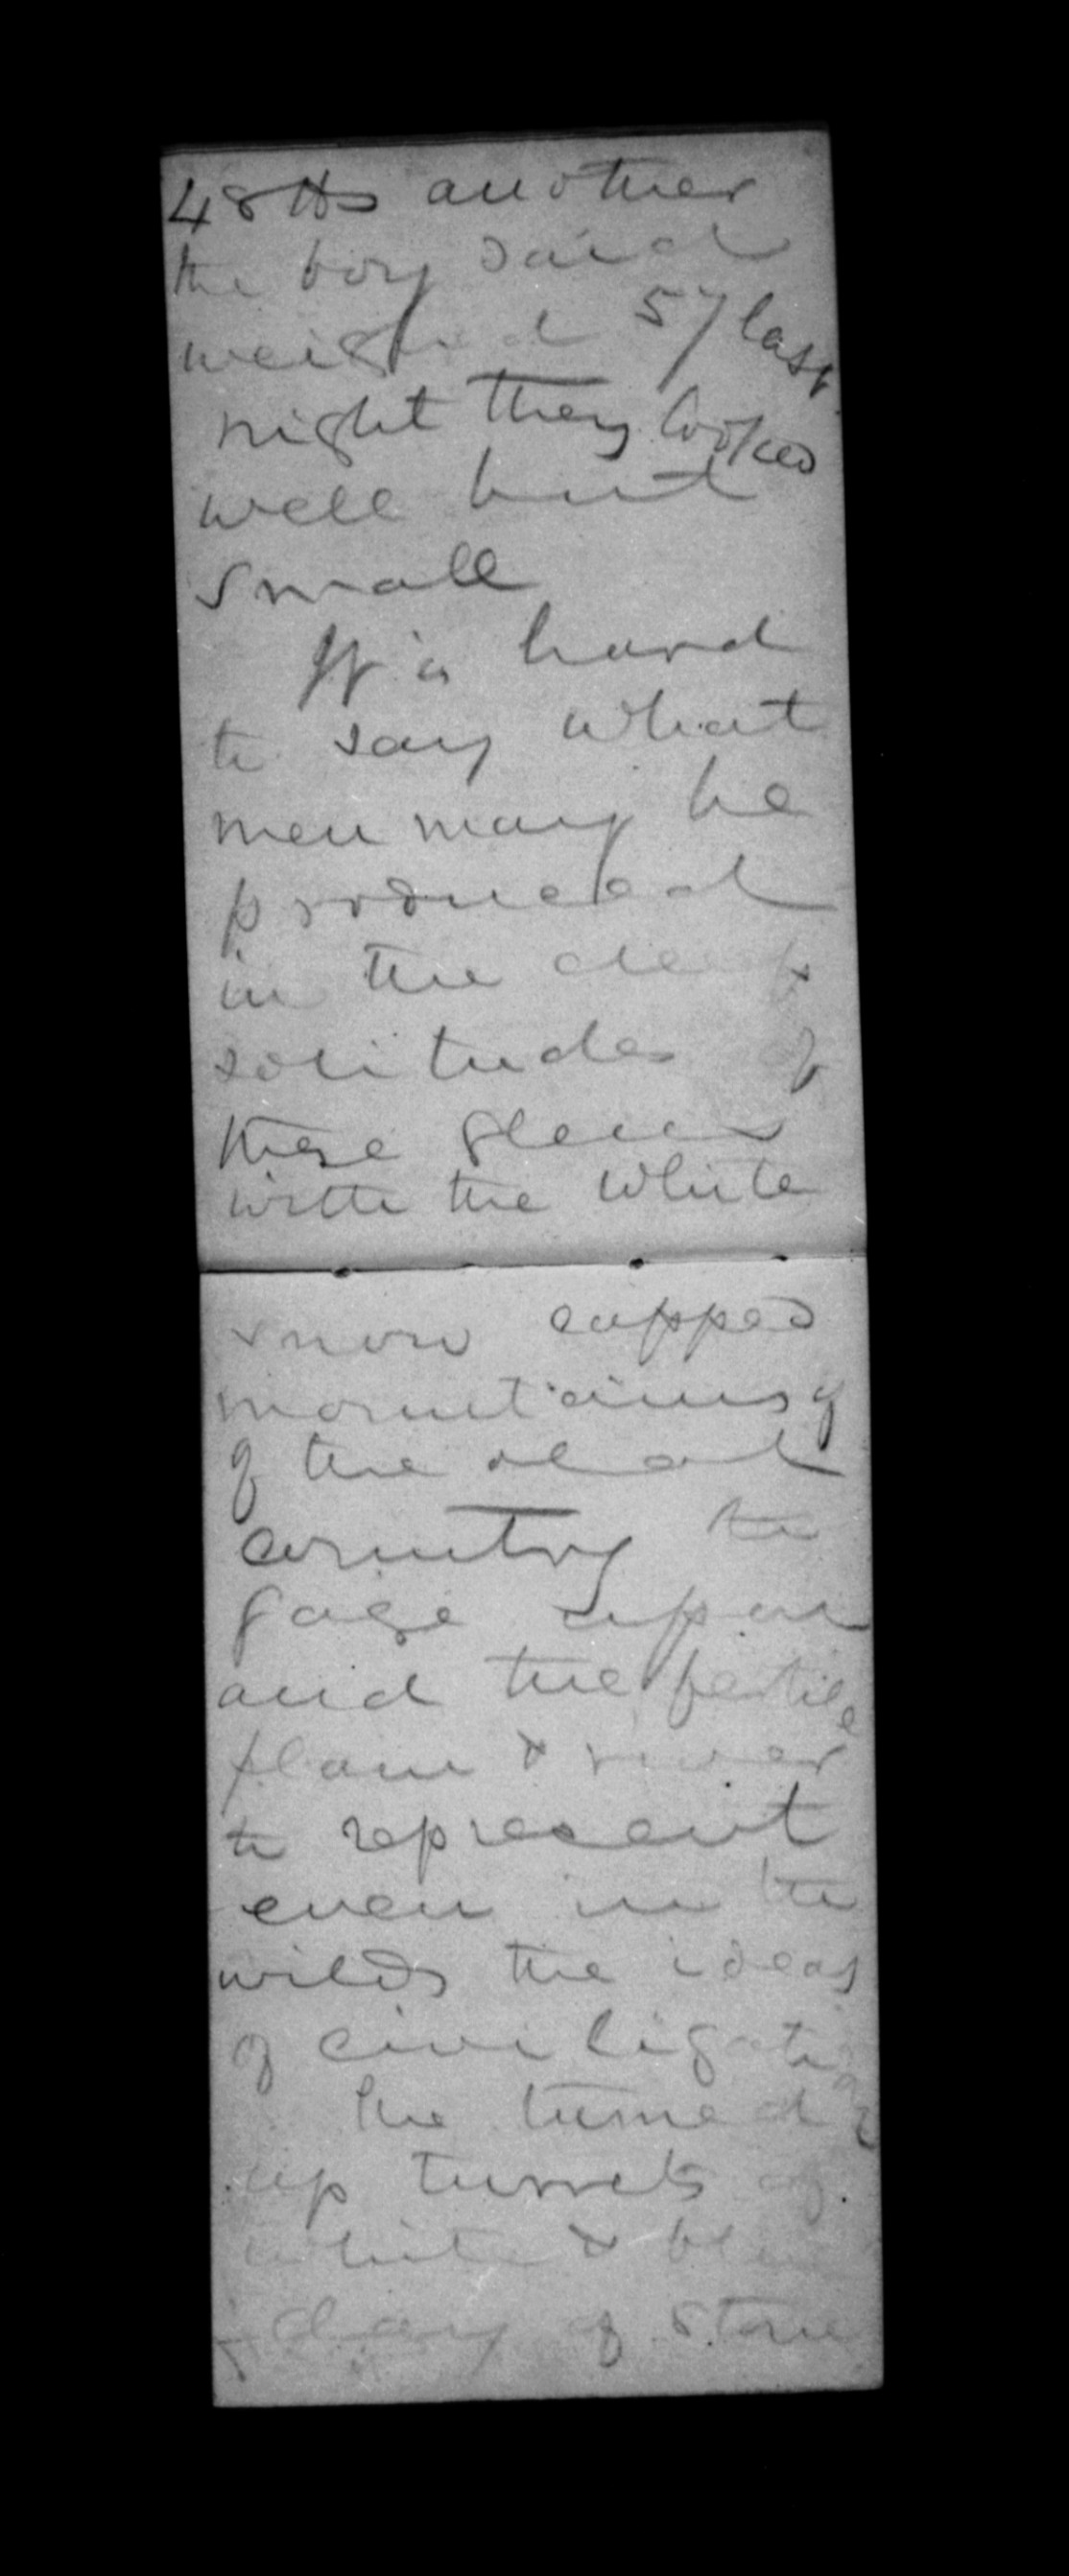 48 lbs another
the boy said
weighed 57 last
night they looked
well but
small
It is hard
to say what
men may be
produced
in the deep
solitudes of
these glens
with the white
snow capped
mountains of
of the old
country to
gaze upon
and the fertile
plain & river
to represent
even in the
wilds the ideas
of civilization
The turned
up turrets of
white & blue
clay of stone